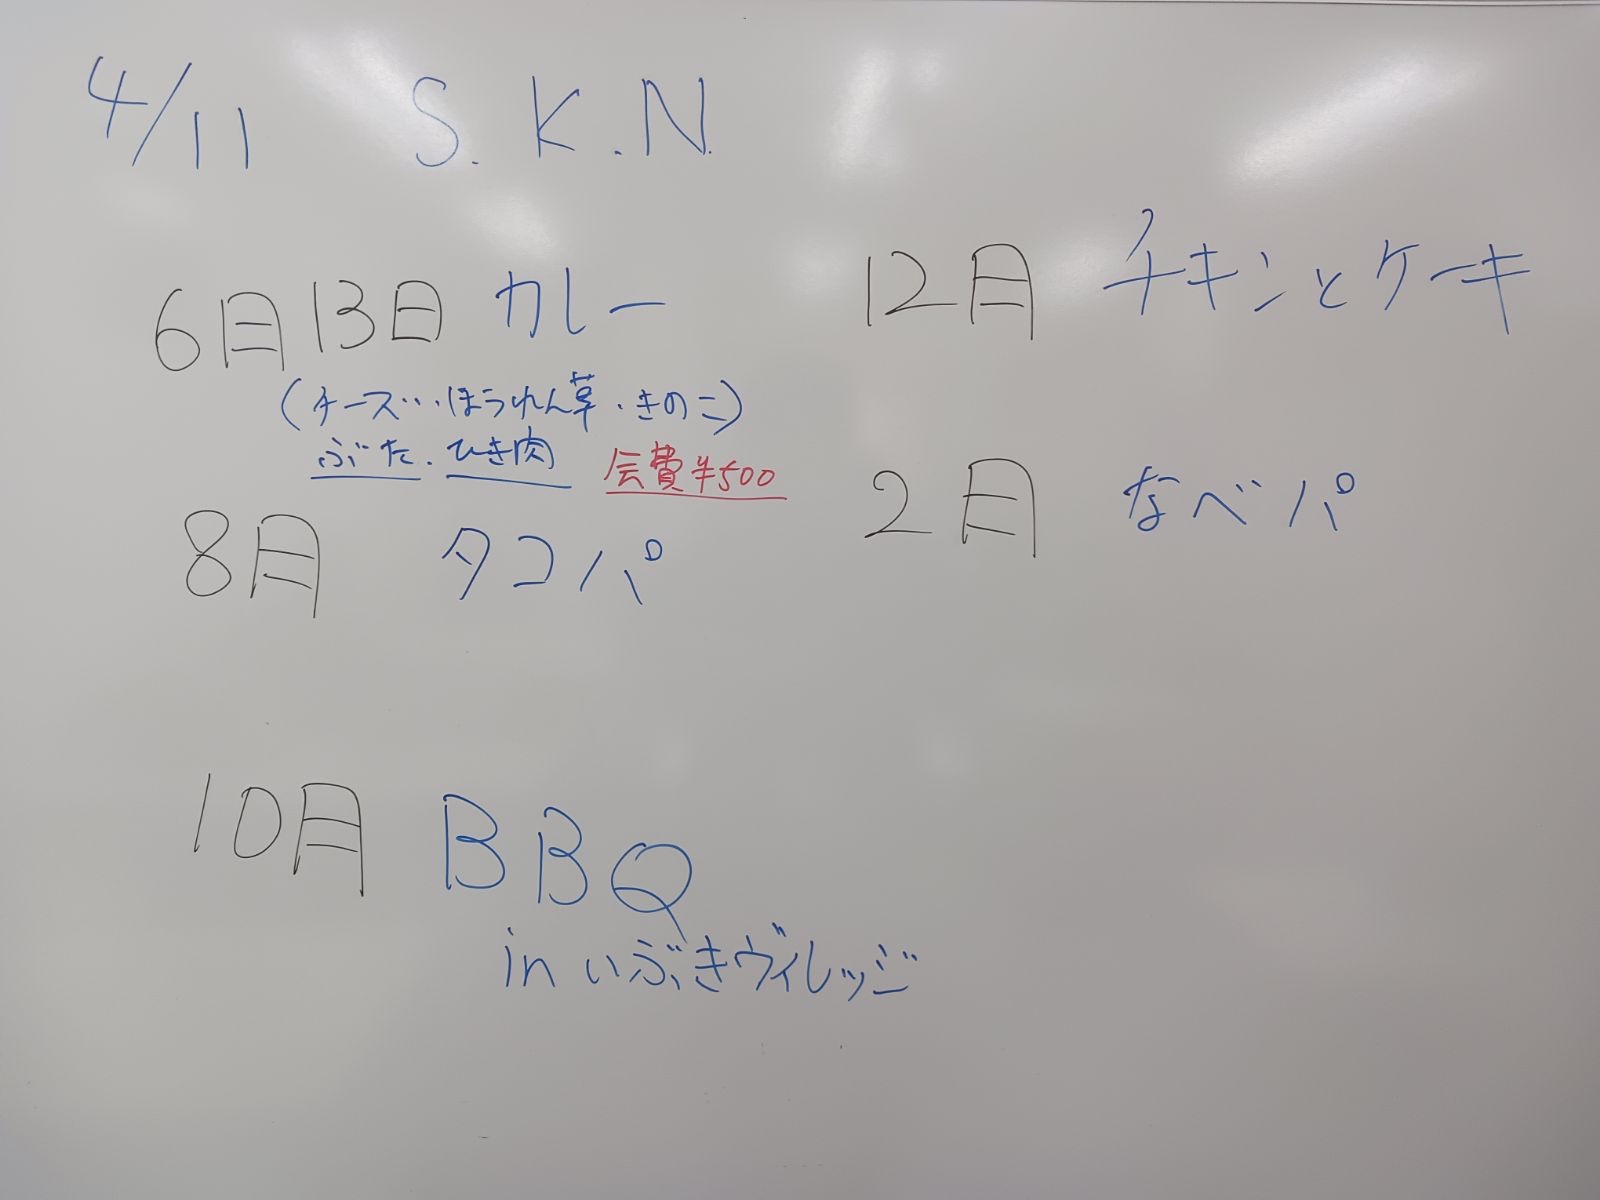 4/11 S.K.N.
6月13日 カレー
(チーズ…ほうれん草・きのこ)
ぶた.ひき肉 会費¥500
8月 タコパ
10月 BBQ
in いぶきヴィレッジ
12月 チキンとケーキ
2月 なべパ